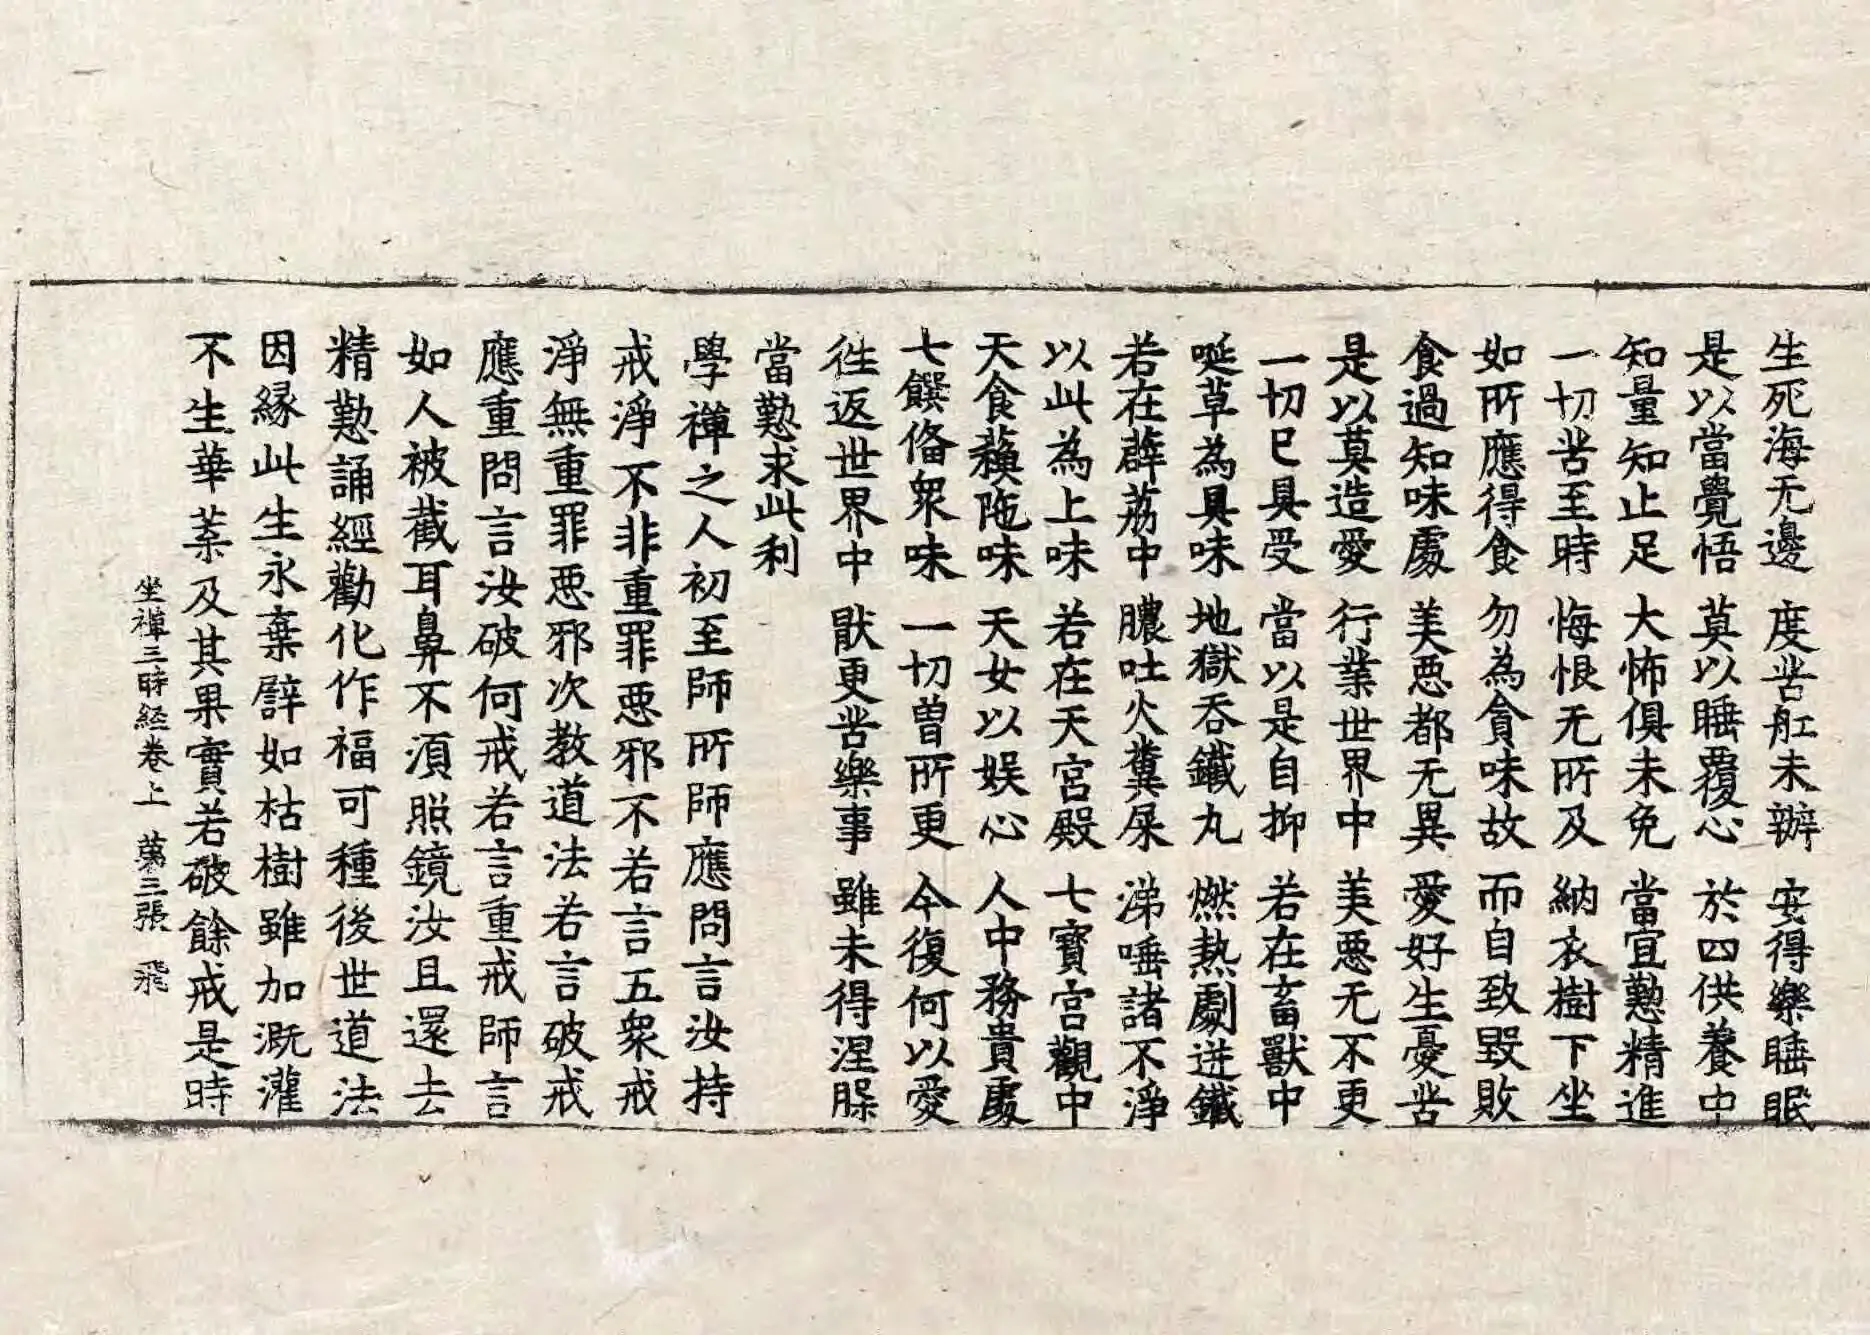 生死海无邊　度苦舡未辦　安得樂睡眠
是以當覺悟　莫以睡覆心　於四供養中
知量知止足　大怖俱未免　當宜懃精進
一切苦至時　悔恨无所及　納衣樹下坐
如所應得食　勿為貪味故　而自致毀敗
食過知味處　美惡都无異　愛好生憂苦
是以莫造愛　行業世界中　美惡无不更
一切已具受　當以是自抑　若在畜獸中
唌草為具味　地獄吞鐵丸　燃熱劇迸鐵
若在薜荔中　膿吐火糞屎　涕唾諸不淨
以此為上味　若在天宮殿　七寶宮觀中
天食蘇陁味　天女以娛心　人中務貴處
七饌俻衆味　一切曽所更　今復何以愛
徃返世界中　猒更苦樂事　雖未得涅槃
當懃求此利
學禪之人初至師所師應問言汝持
戒淨不非重罪惡邪不若言五衆戒
淨無重罪惡邪次教道法若言破戒
應重問言汝破何戒若言重戒師言
如人被截耳鼻不湏照鏡汝且還去
精懃誦經勸化作福可種後世道法
因縁此生永棄譬如枯樹雖加溉灌
不生華葉及其果實若破餘戒是時
坐禪三昧経卷上　第三張　飛